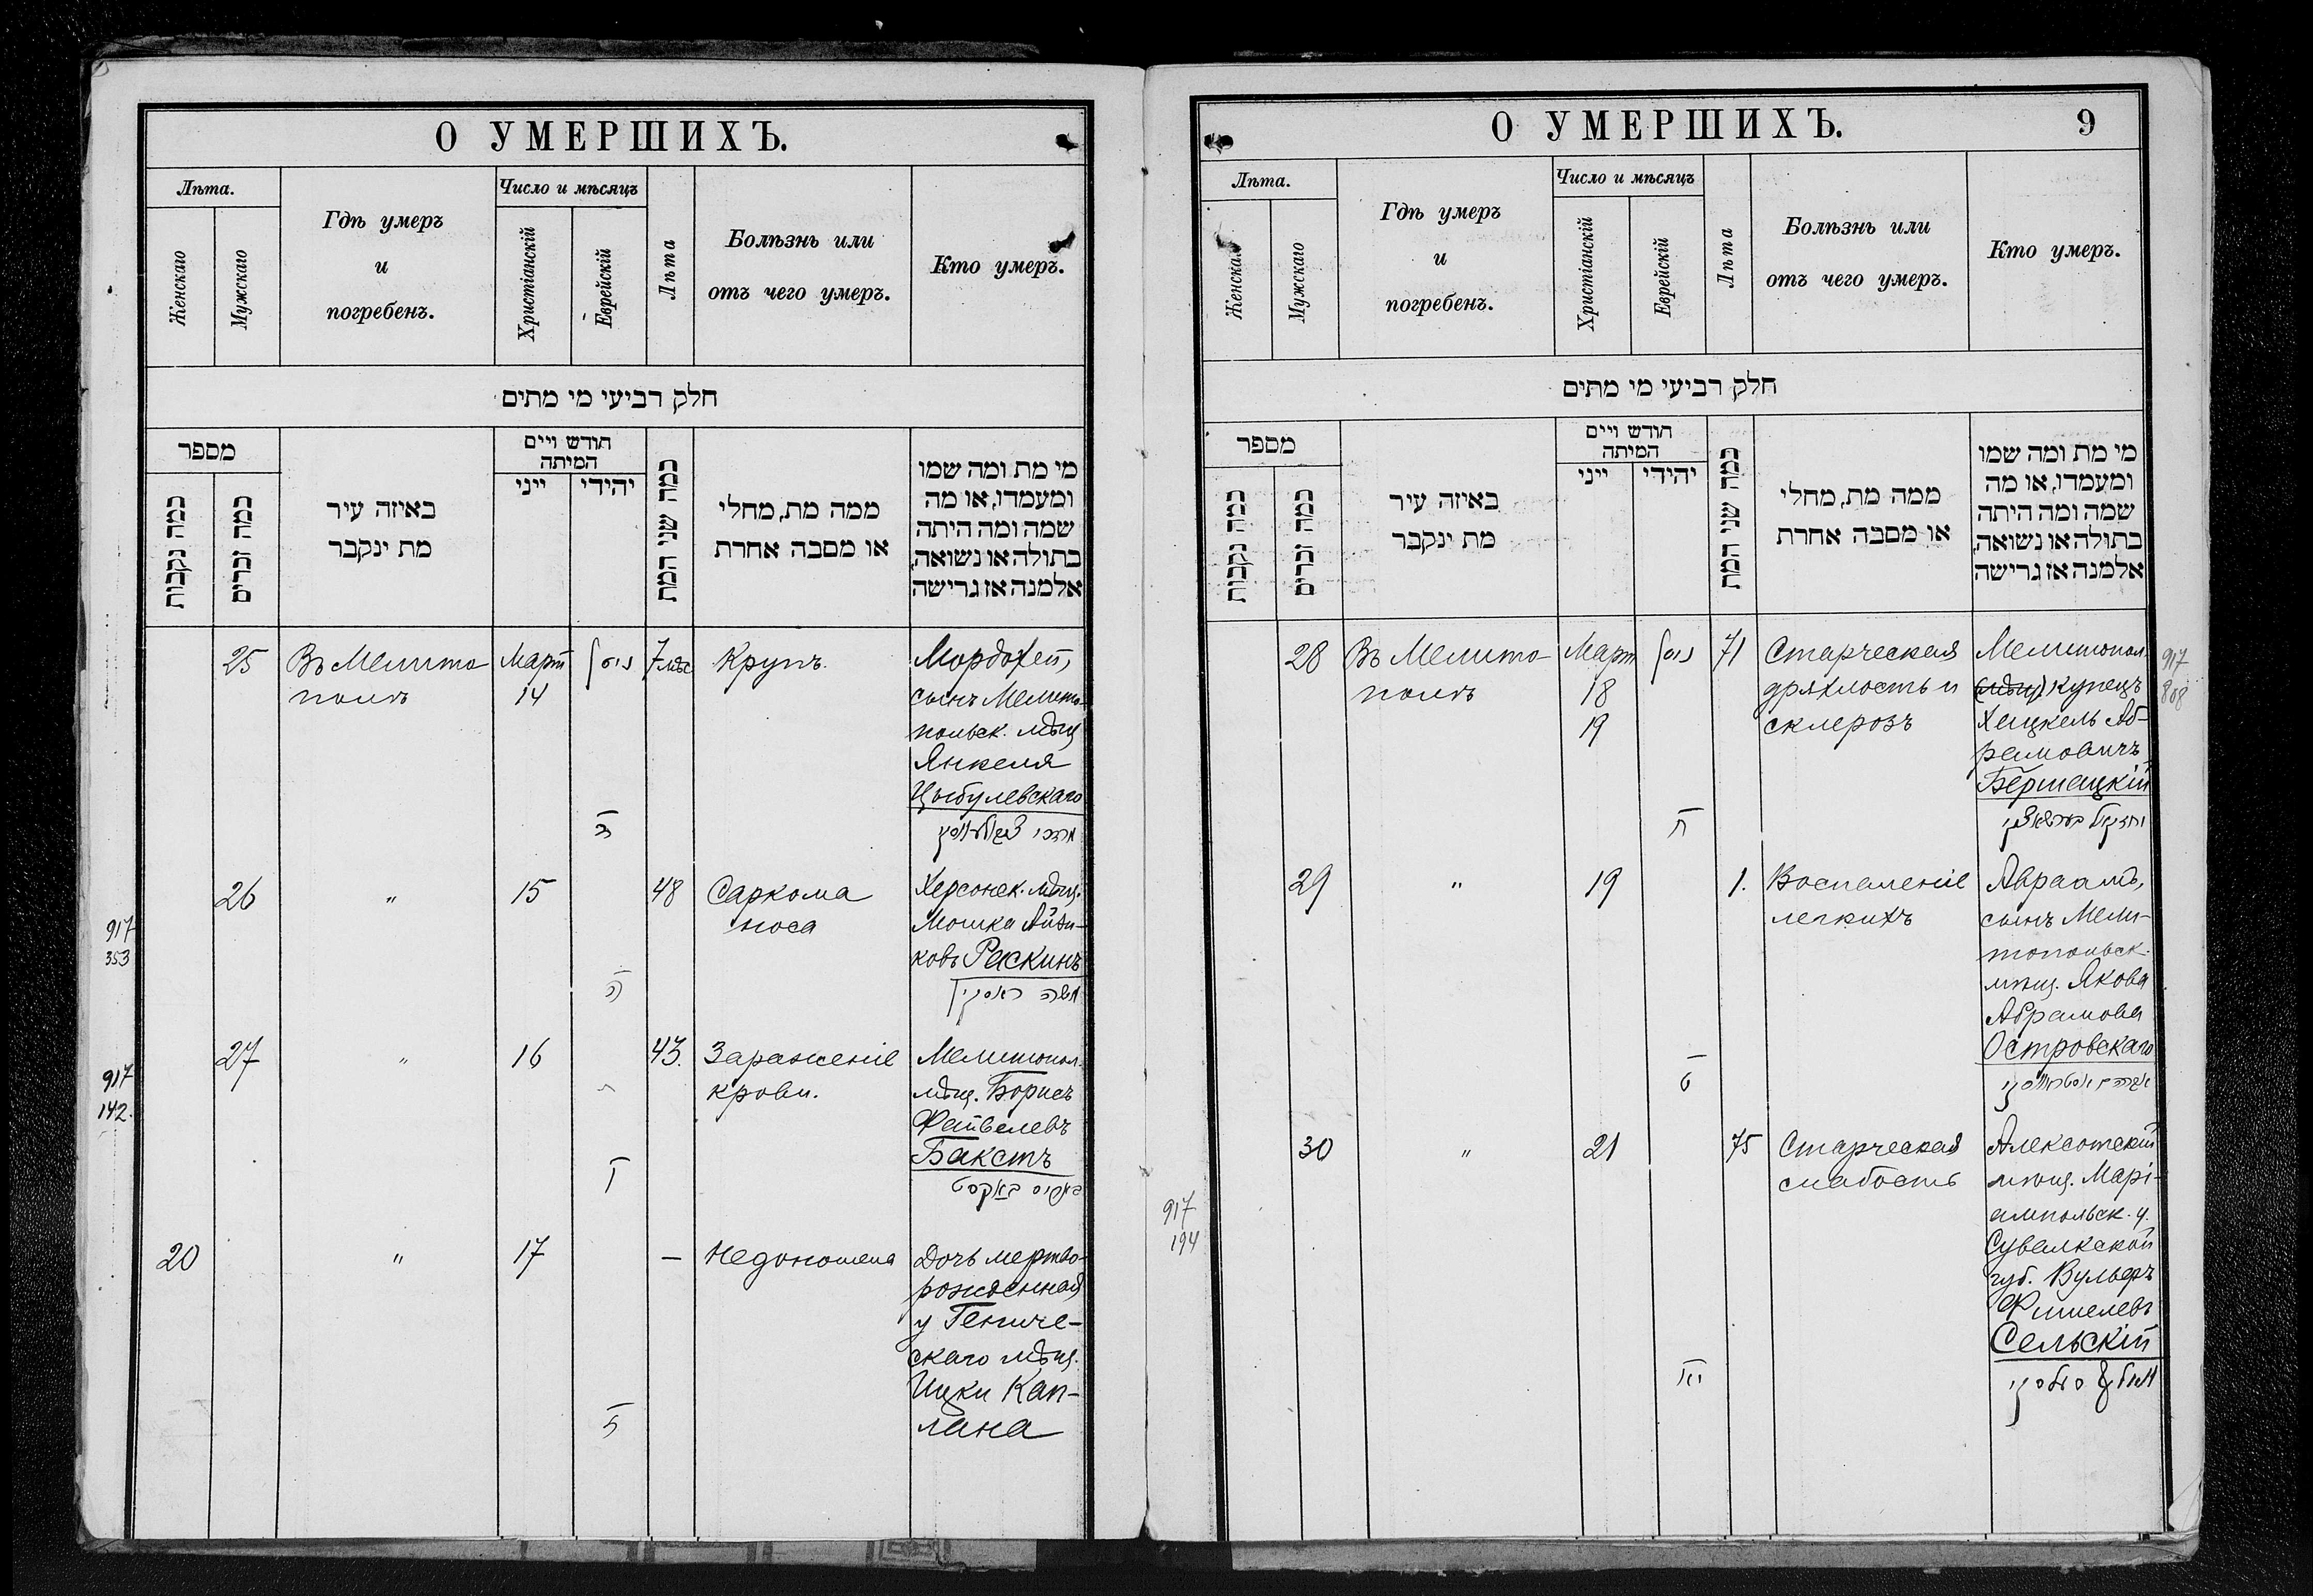 О УМЕРШИХЪ.
Лѣта.
Женскаго
Мужскаго
Гдѣ умеръ
и
погребенъ.
Число и мѣсяцъ
Христіанскій
Еврейскій
Лѣта
Болѣзнь или
отъ чего умеръ.
Кто умеръ.
חלק רביעי מי מתים
מספר
כמה נקבות
כמה זכרים
באיזה עיר
מת ינקבר
חודש ויים
המיתה
ייני
יהידי
כמה שני המת
ממה מת, מחלי
או מסבה אחרת
מי מת ומה שמו
ומעמדו, או מה
שמה ומה היתה
בתולה או נשואה,
אלמנה אז גרישה
25
Въ Мелито-
полѣ
Март
14
ניסן
ג
7 мѣс
Крупъ
Мордохей,
сынъ Мелито-
польск. мѣщ
Янкеля
Цыбулевскаго
מרדכי
917
353
26
"
15
ה
48
Саркома
носа
Херсонск. мѣщ.
Мошка Айзи-
ковъ Раскинъ
משה ראסקין
917
142.
27
"
16
ו
43.
Зараженіе
крови.
Мелитопол.
мѣщ. Борисъ
Файвелевъ
Бакстъ
באקסט
20
"
17
ז
—
Недоношена
Дочь мертво-
рожденная
у Гениче-
скаго мѣщ.
Ицки Кап-
лана
О УМЕРШИХЪ.
9
Лѣта.
Женскаго
Мужскаго
Гдѣ умеръ
и
погребенъ.
Число и мѣсяцъ
Христіанскій
Еврейскій
Лѣта
Болѣзнь или
отъ чего умеръ.
Кто умеръ.
חלק רביעי מי מתים
מספר
כמה נקבות
כמה זכרים
באיזה עיר
מת ינקבר
חודש ויים
המיתה
ייני
יהידי
כמה שני המת
ממה מת, מחלי
או מסבה אחרת
מי מת ומה שמו
ומעמדו, או מה
שמה ומה היתה
בתולה או נשואה,
אלמנה אז גרישה
28
Въ Мелито-
полѣ
Март
18
19
ניסן
ח
71
Старческая
дряхлость и
склерозъ
Мелитопол.
(мѣщ) купецъ
Хацкель Аб-
рамовичъ
Бершацкій
יחזקאל
917
808
29
"
19
ט
1.
Воспаленіе
легкихъ
Авраамъ,
сынъ Мели-
топольск.
мѣщ. Якова
Абрамова
Островскаго
אברהם אסטראווסקי
917
194
30
"
21
יא
75
Старческая
слабость
Алексотскій
мѣщ. Марі-
ампольск. у.
Сувалкской
губ. Вульфъ
Фишелевъ
Сельскій
וואלף סעלסקי